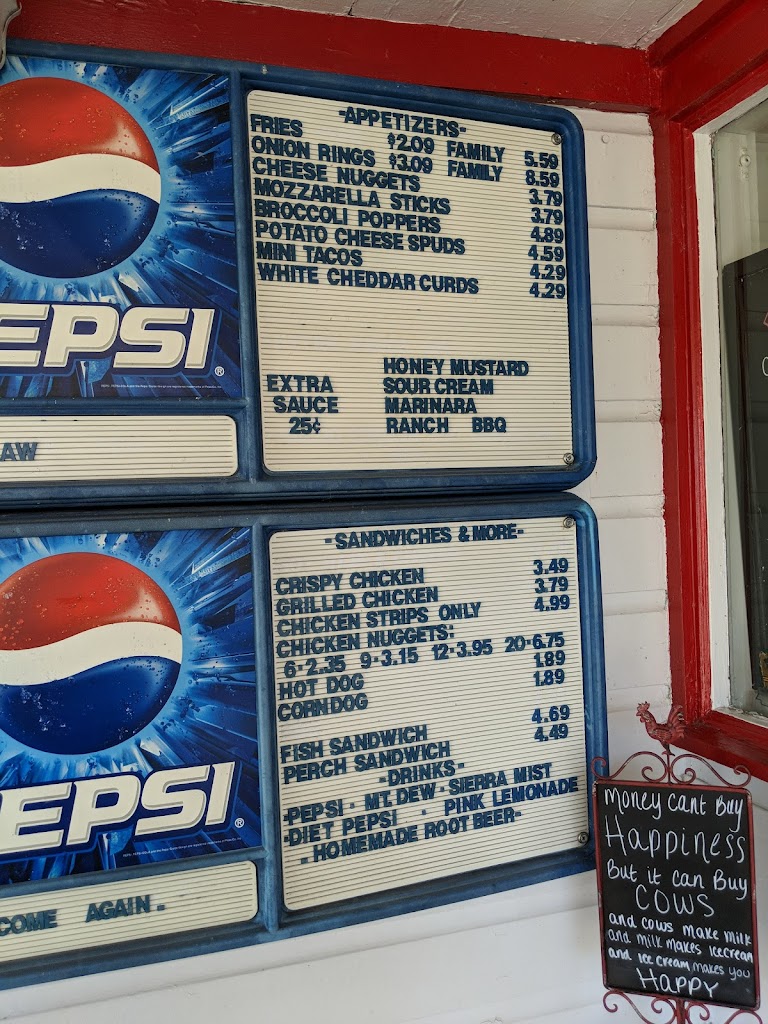 -APPETIZERS-
FRIES $2.09 FAMILY 5.59
ONION RINGS $3.09 FAMILY 8.59
CHEESE NUGGETS 3.79
MOZZARELLA STICKS 3.79
BROCCOLI POPPERS 4.89
POTATO CHEESE SPUDS 4.59
MINI TACOS 4.29
WHITE CHEDDAR CURDS 4.29
HONEY MUSTARD
EXTRA SOUR CREAM
SAUCE MARINARA
25¢ RANCH BBQ
EPSI®
AW
-SANDWICHES & MORE-
CRISPY CHICKEN 3.49
GRILLED CHICKEN 3.79
CHICKEN STRIPS ONLY 4.99
CHICKEN NUGGETS:
6-2.35 9-3.15 12-3.95 20-6.75
HOT DOG 1.89
CORNDOG 1.89
FISH SANDWICH 4.69
PERCH SANDWICH 4.49
-DRINKS-
-PEPSI - MT. DEW - SIERRA MIST
-DIET PEPSI - PINK LEMONADE
- HOMEMADE ROOT BEER-
EPSI®
COME AGAIN -
Money Cant Buy
Happiness
But it can Buy
COWS
and cows make milk
and milk makes icecream
and ice cream makes you
Happy